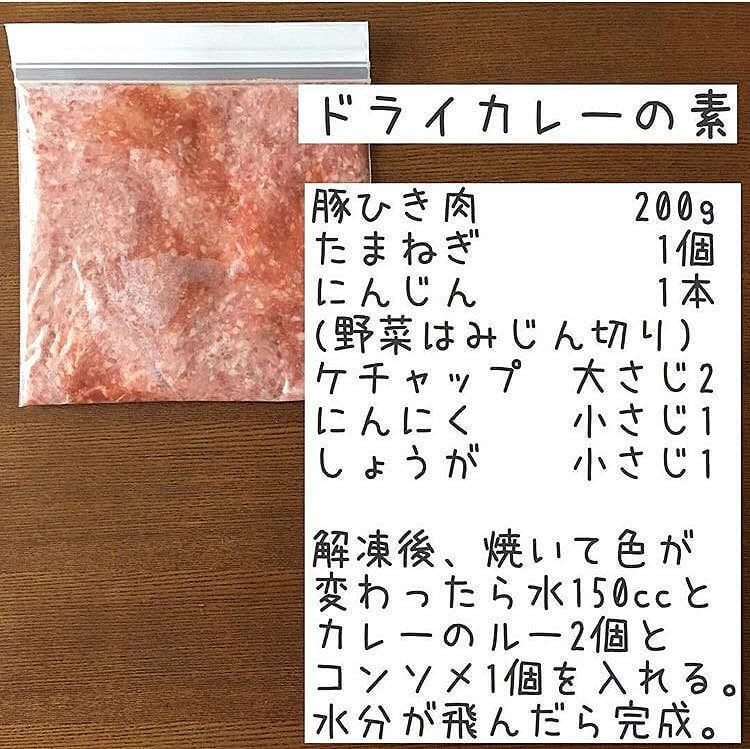 ドライカレーの素
豚ひき肉 200g
たまねぎ 1個
にんじん 1本
(野菜はみじん切り)
ケチャップ 大さじ2
にんにく 小さじ1
しょうが 小さじ1
解凍後、焼いて色が
変わったら水150ccと
カレーのルー2個と
コンソメ1個を入れる。
水分が飛んだら完成。